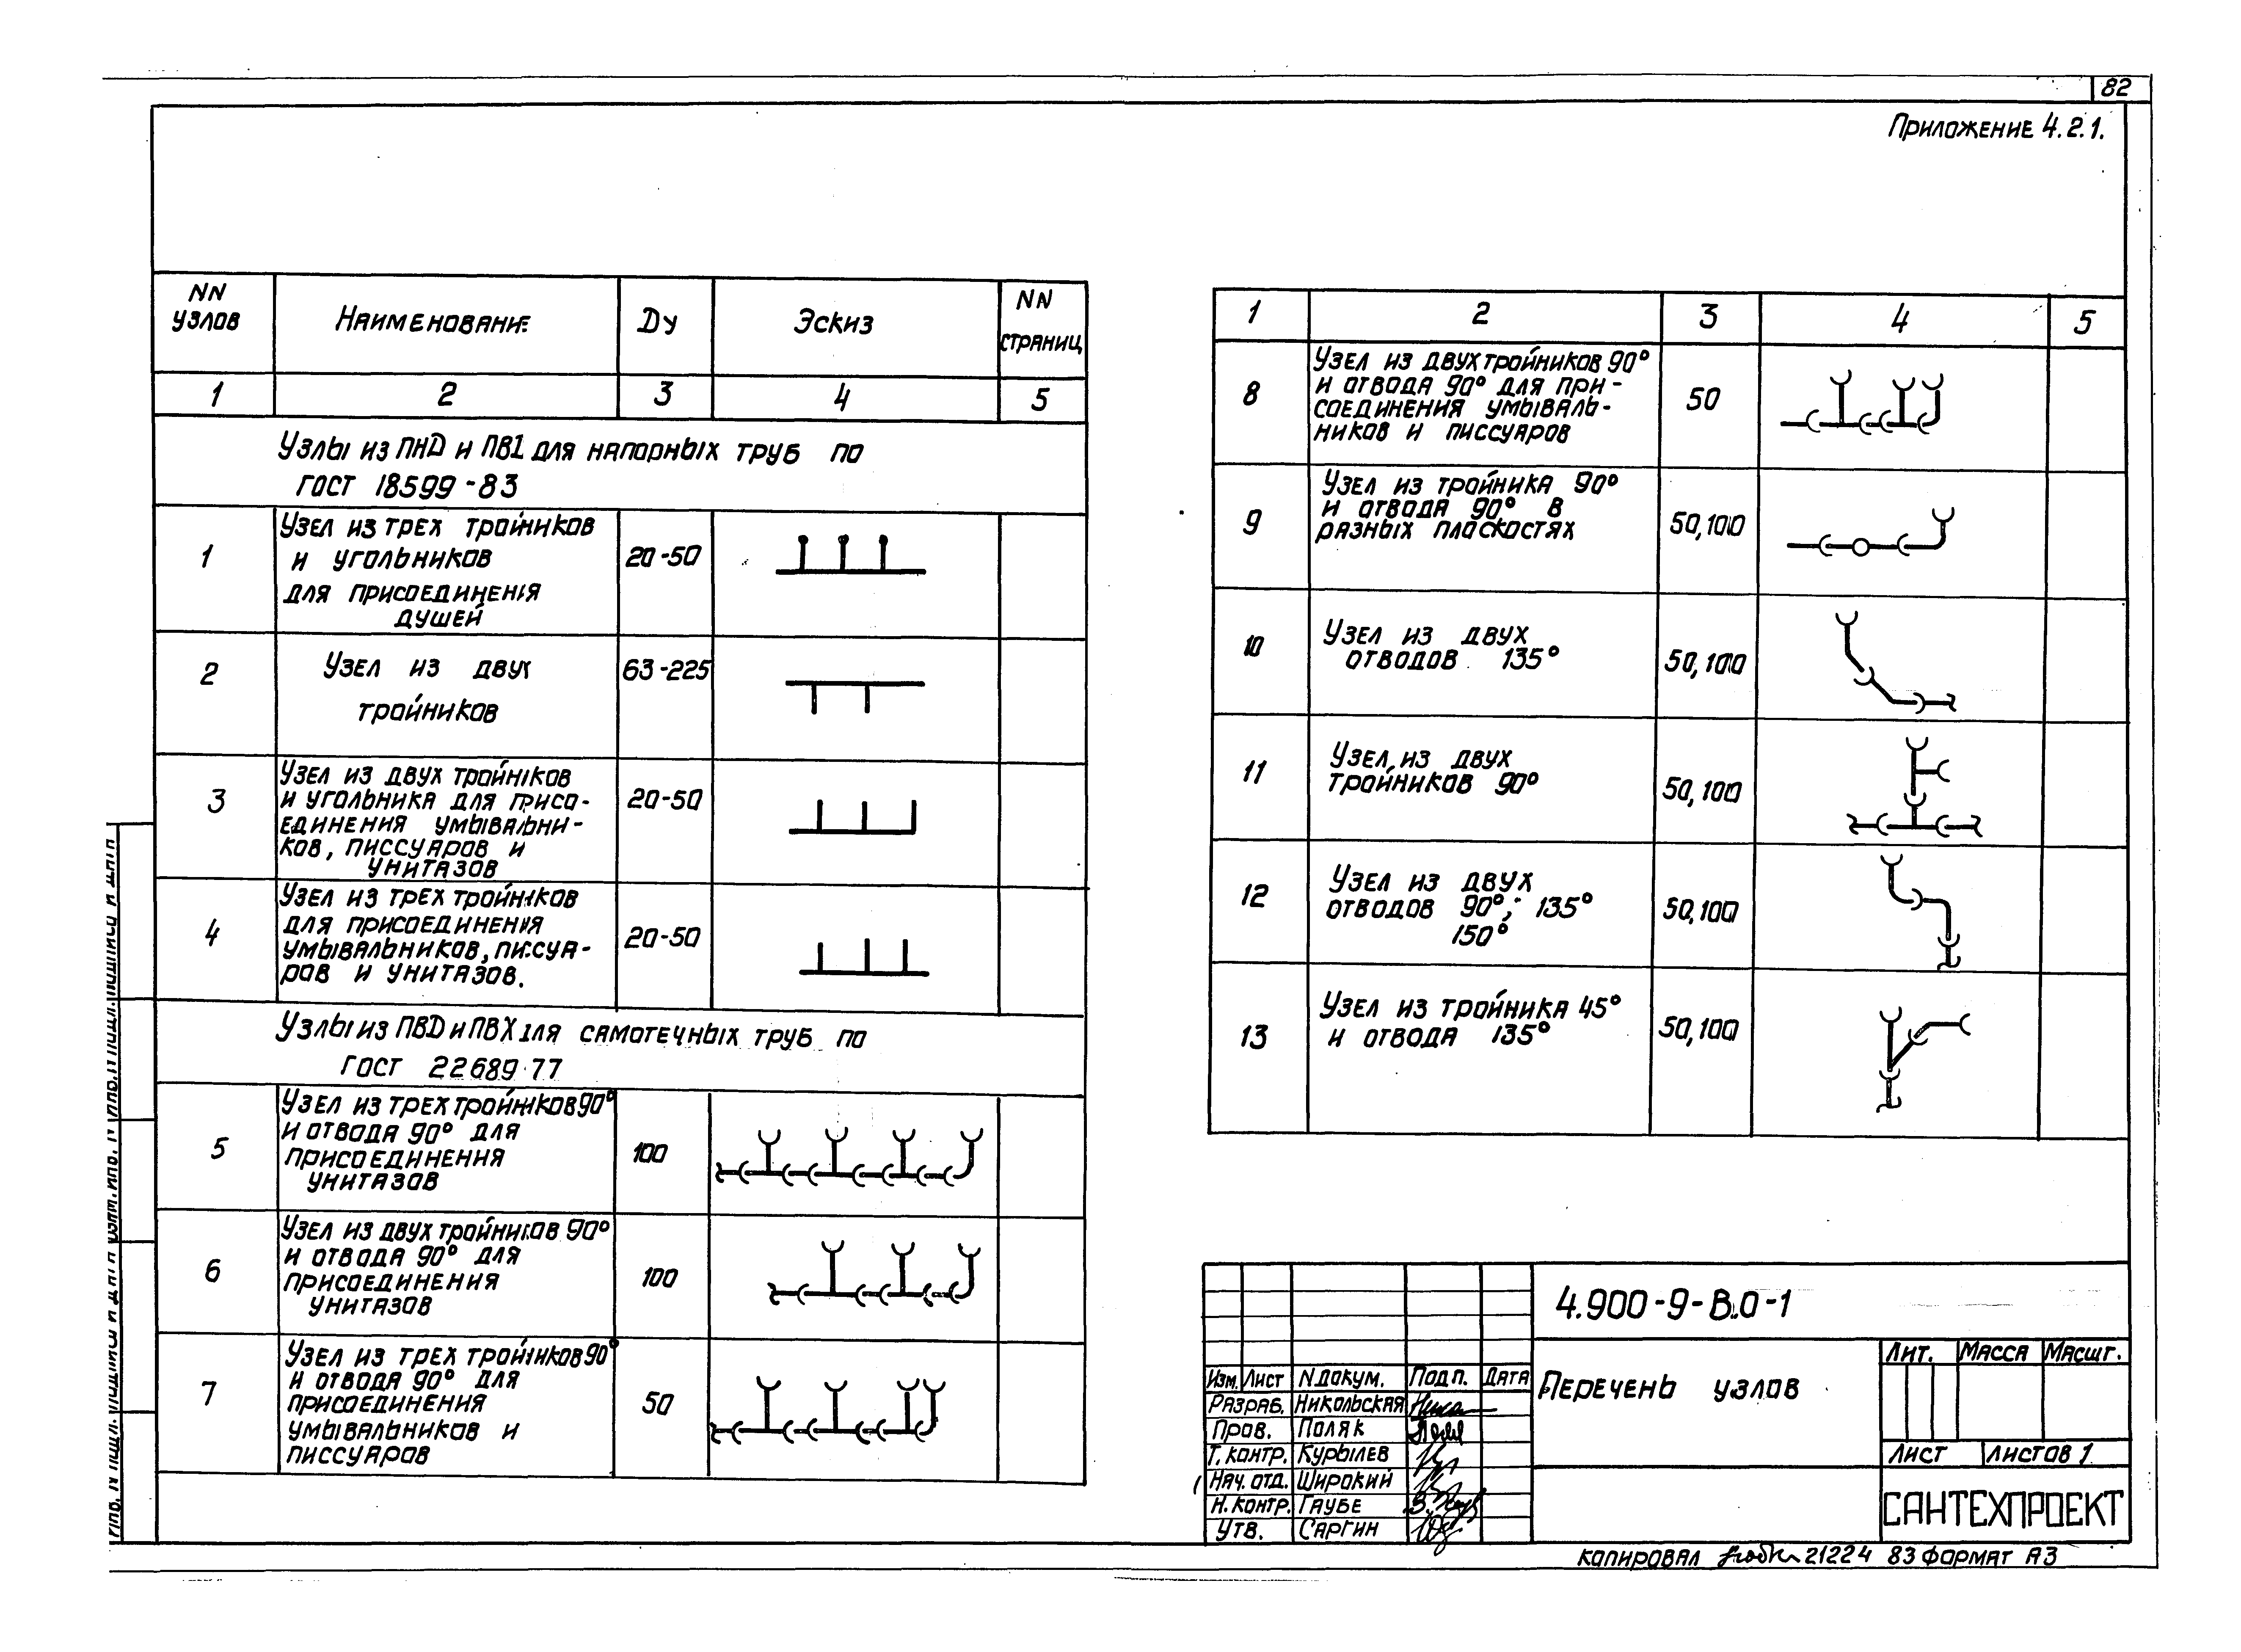 82
Приложение 4.2.1.
NN узлов
Наименование
Ду
Эскиз
NN страниц
1 2 3 4 5
Узлы из ПНД и ПВД для напорных труб по
ГОСТ 18599-83
1
Узел из трех тройников
и угольников
для присоединения
душей
20-50
2
Узел из двух
тройников
63-225
3
Узел из двух тройников
и угольника для присо-
единения умывальни-
ков, писсуаров и
унитазов
20-50
4
Узел из трех тройников
для присоединения
умывальников, писсуа-
ров и унитазов.
20-50
Узлы из ПВД и ПВХ для самотечных труб по
ГОСТ 22689-77
5
Узел из трех тройников 90°
и отвода 90° для
присоединения
унитазов
100
6
Узел из двух тройников 90°
и отвода 90° для
присоединения
унитазов
100
7
Узел из трех тройников 90°
и отвода 90° для
присоединения
умывальников и
писсуаров
50
1 2 3 4 5
8
Узел из двух тройников 90°
и отвода 90° для при-
соединения умываль-
ников и писсуаров
50
9
Узел из тройника 90°
и отвода 90° в
разных плоскостях
50,100
10
Узел из двух
отводов 135°
50,100
11
Узел из двух
тройников 90°
50,100
12
Узел из двух
отводов 90°; 135°
150°
50,100
13
Узел из тройника 45°
и отвода 135°
50,100
4.900-9-В.0-1
Перечень узлов
Лит. Масса Масшт.
Лист Листов 1
САНТЕХПРОЕКТ
Изм. Лист N докум. Подп. Дата
Разраб. Никольская
Пров. Поляк
Т. контр. Курылев
Нач. отд. Широкий
Н. контр. Гаубе
Утв. Саргин
Копировал 21224 83 Формат А3